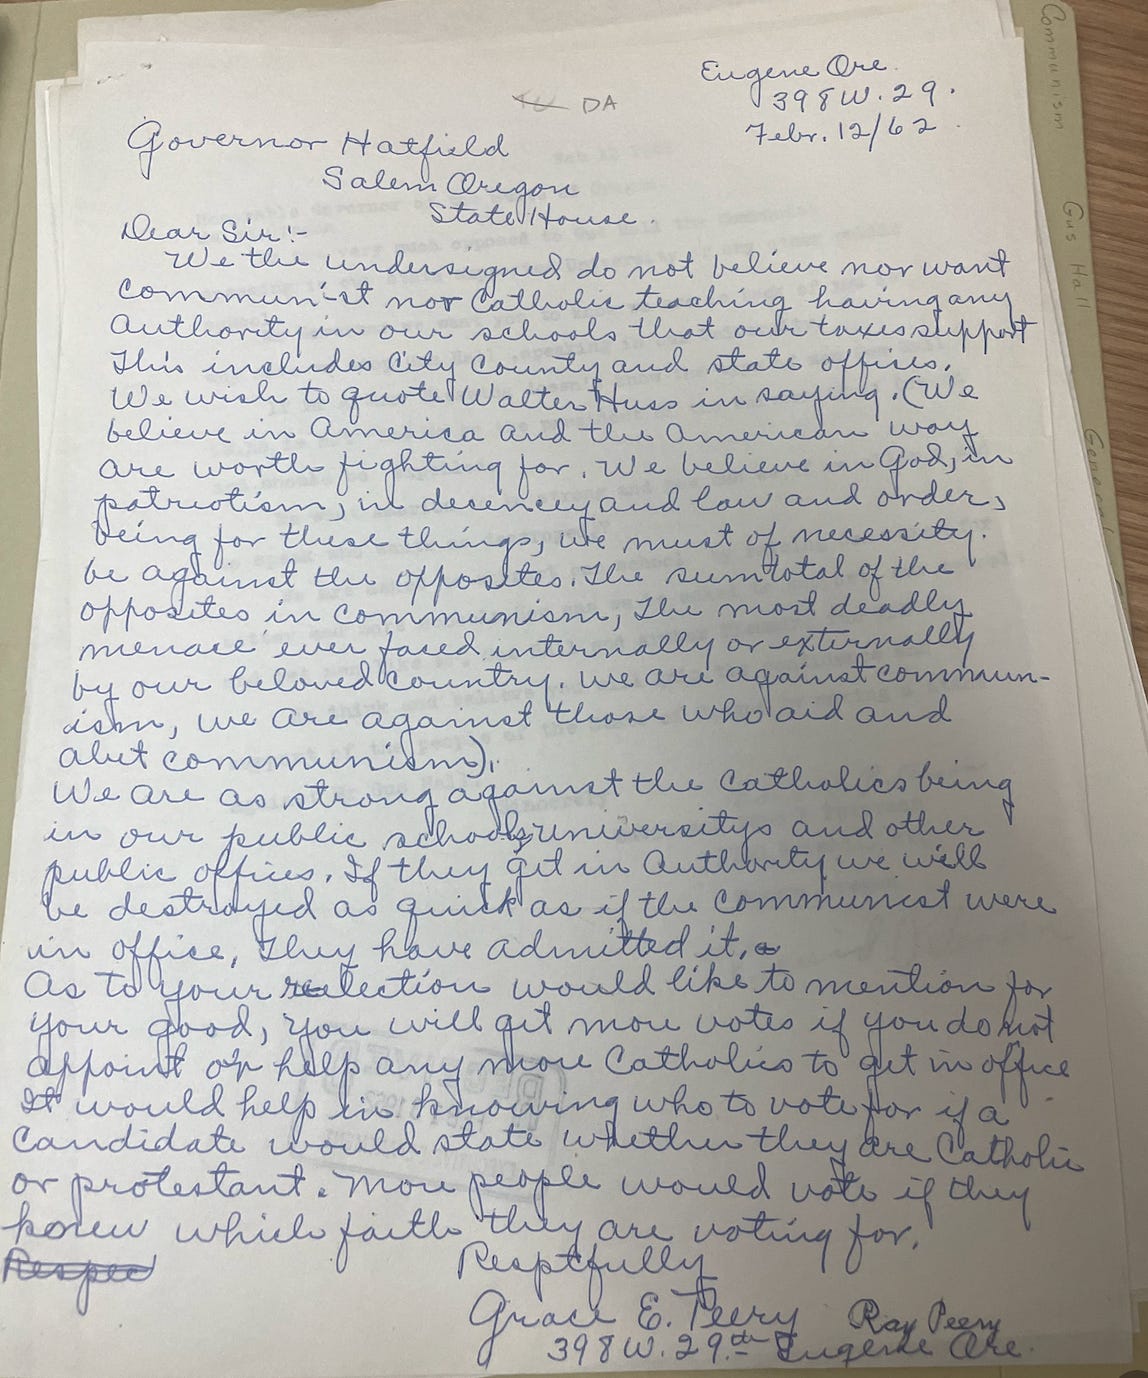 Eugene Ore.
DA
398 W. 29.
Febr. 12/62.
Governor Hatfield
Salem Oregon
State House.
Dear Sir:-
We the undersigned do not believe nor want
communist nor Catholic teaching having any
Authority in our schools that our taxes support
This includes City County and state offices.
We wish to quote Walter Huss in saying. (We
believe in America and the American way
are worth fighting for. We believe in God, in
patriotism, in decencey and law and order,
being for these things, we must of necessity.
be against the opposites. The sumtotal of the
opposites in communism, The most deadly
menace ever faced internally or externally
by our beloved country. We are against commun-
ism, we are against those who aid and
abet communism).
We are as strong against the Catholics being
in our public schools, universitys and other
public offices. If they get in Authority we will
be destroyed as quick as if the Communist were
in office, They have admitted it,
As to your relection would like to mention for
your good, you will get more votes if you do not
appoint or help any more Catholics to get in office
It would help in knowing who to vote for if a
Candidate would state whether they are Catholic
or protestant. More people would vote if they
knew which faith they are voting for.
Respec
Resptfully
Grace E. Peery Ray Peery
398 W. 29.th Eugene Ore.
Communism
Gus Hall
General